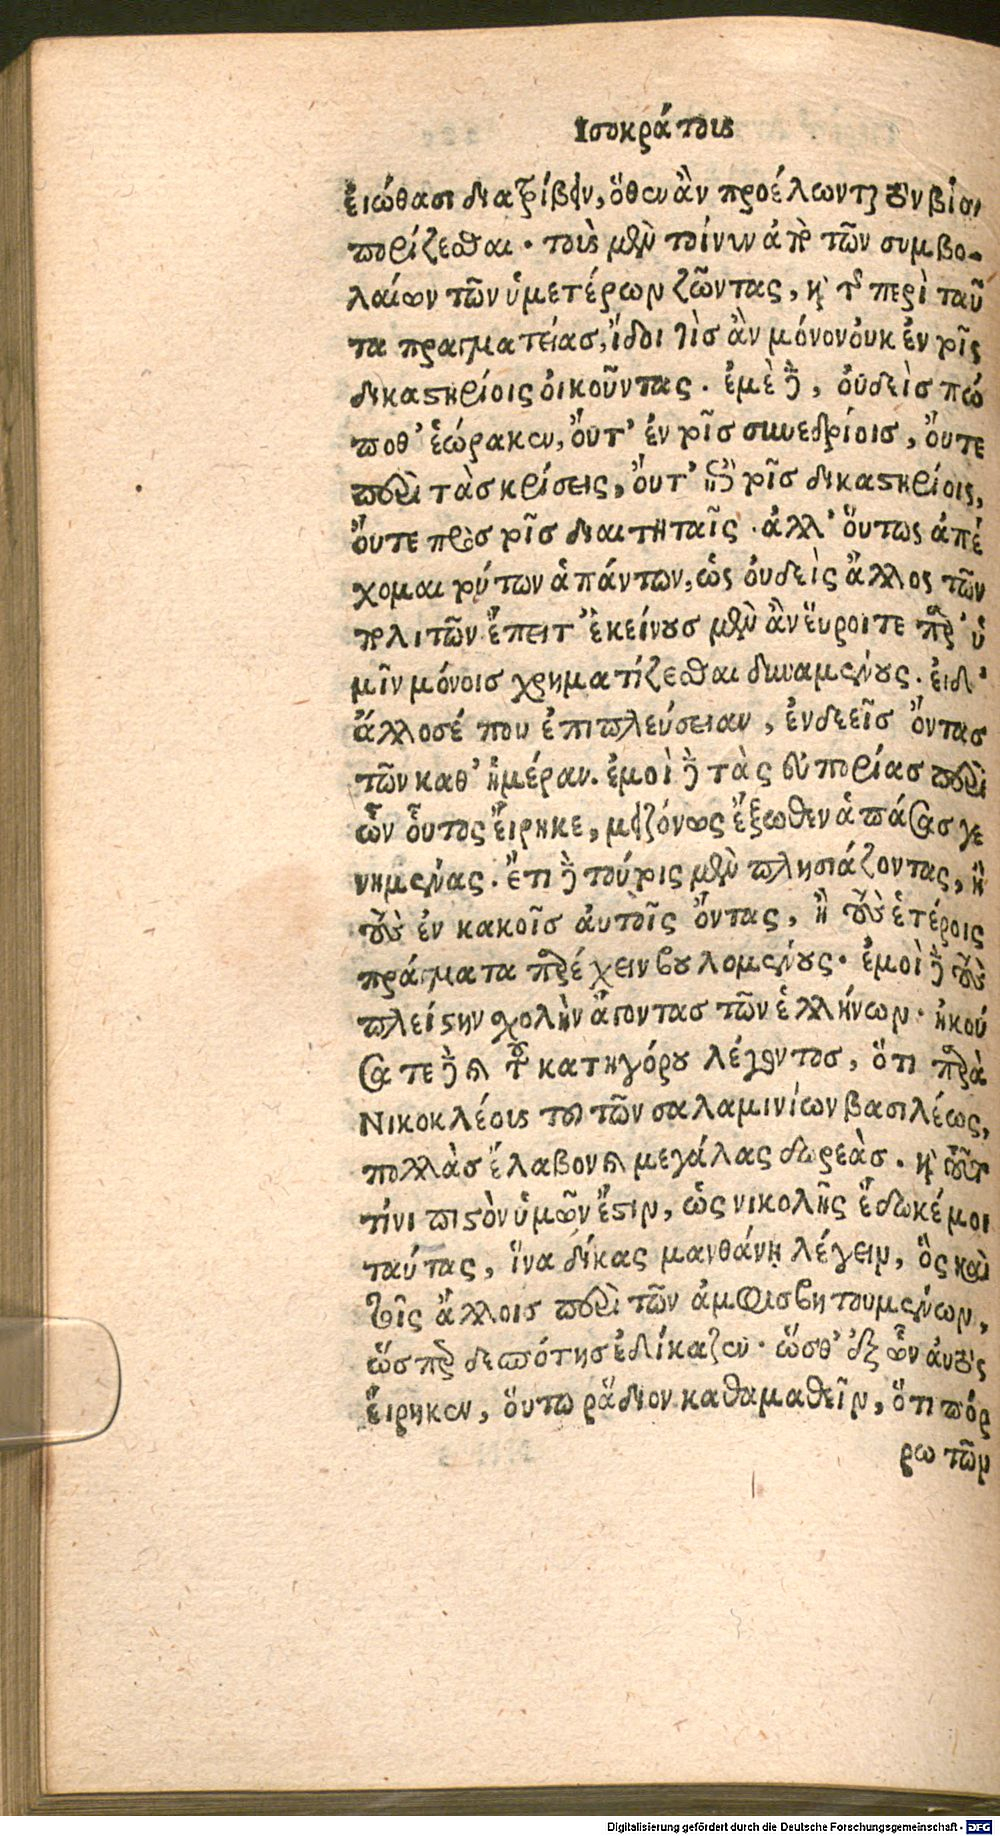 Ισοκράτους
ἐιώθασι διατρίβειν, ὅθεν ἂν προέλωνται τὸν βίον
πορίζεσθαι. τοὺς μὲν τοίνυν ἀπὸ τῶν συμβο-
λαίων τῶν ὑμετέρων ζῶντας, καὶ τῆς περὶ ταῦ
τα πραγματείας, ἴδοι τὶς ἂν μόνον οὐκ ἐν τοῖς
δικαστηρίοις οἰκοῦντας. ἐμὲ δὲ, οὐδεὶς πώ
ποθ' ἑώρακεν, οὔτ' ἐν τοῖς συνεδρίοις, οὔτε
περὶ τὰς κρίσεις, οὔτ' ἐπὶ τοῖς δικαστηρίοις,
οὔτε πρὸς τοῖς διαιτηταῖς. ἀλλ' οὕτως ἀπέ
χομαι τούτων ἁπάντων, ὡς οὐδεὶς ἄλλος τῶν
πολιτῶν ἔπειτ' ἐκείνους μὲν ἂν εὕροιτε παρ' ὑ
μῖν μόνοις χρηματίζεσθαι δυναμένους. ἐι δ'
ἄλλοσέ που ἐπιπλεύσειαν, ἐνδεεῖς ὄντας
τῶν καθ' ἡμέραν. ἐμοὶ δὲ τὰς εὐπορίας περὶ
ὧν οὗτος ἔιρηκε, μειζόνως ἔξωθεν ἁπάσας γε
νημένας. ἔτι δὲ τούτοις μὲν πλησιάζοντας, ἢ
τοὺς ἐν κακοῖς αὐτοῖς ὄντας, ἢ τοὺς ἑτέροις
πράγματα παρέχειν βουλομένους. ἐμοὶ δὲ τοὺς
πλείστην σχολὴν ἄγοντας τῶν ἑλλήνων. ἠκού
σατε δὲ καὶ τοῦ κατηγόρου λέγοντος, ὅτι παρὰ
Νικοκλέους τοῦ τῶν σαλαμινίων βασιλέως,
πολλὰς ἔλαβον καὶ μεγάλας δωρεὰς. καὶ τοῦτ
τίνι πιστὸν ὑμῶν ἔστιν, ὡς νικολῆς ἔδωκέ μοι
ταύτας, ἵνα δίκας μανθάνῃ λέγειν, ὃς καὶ
τοῖς ἄλλοις περὶ τῶν ἀμφισβητουμένων,
ὥσπερ δεσπότης ἐδίκαζεν. ὥσθ' ἐξ ὧν αὐτὸς
ἔιρηκεν, οὕτω ῥᾴδιον καθαμαθεῖν, ὅτι πόρ
ρω τῶν
Digitalisierung gefördert durch die Deutsche Forschungsgemeinschaft - DFG